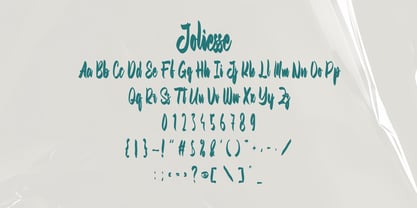 Joliesse
Aa Bb Cc Dd Ee Ff Gg Hh Ii Jj Kk Ll Mm Nn Oo Pp
Qq Rr Ss Tt Uu Vv Ww Xx Yy Zz
0 1 2 3 4 5 6 7 8 9
{ | } ~ ! " # $ % & ' ( ) * + , - . /
: ; < = > ? @ [ \ ] ^ _